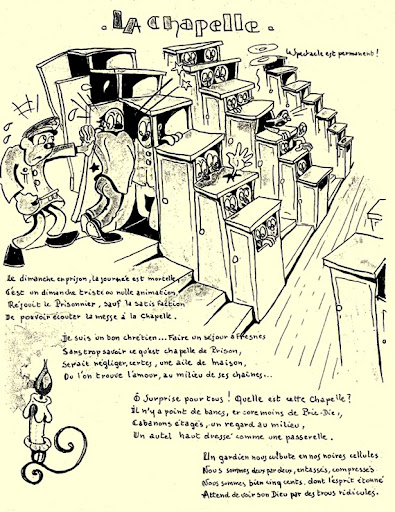 . LA Chapelle .
Le Spectacle est permanent !
Le dimanche en prison, la journée est mortelle,
C'est un dimanche triste ou nulle animation,
Réjouit le Prisonnier, sauf la satisfaction,
De pouvoir écouter la messe à la Chapelle.
Je suis un bon chrétien... Faire un séjour à fresnes
Sans trop savoir ce qu'est chapelle de Prison,
Serait négliger, certes, une aile de maison,
Ou l'on trouve l'amour, au milieu de ses chaines...
Ô Surprise pour tous ! Quelle est cette Chapelle ?
Il n'y a point de bancs, encore moins de Prie-Dieu,
Cabanons étagés, un regard au milieu,
Un autel haut dressé comme une passerelle.
Un gardien nous culbute en nos noires cellules
Nous sommes deux par deux, entassés, compressés
Nous sommes bien cinq cents. dont l'esprit étonné
Attend de voir son Dieu par des trous ridicules.